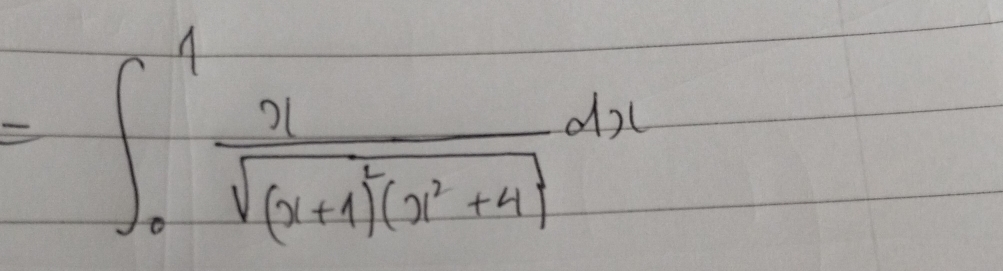 = ∫₀¹ x / √((x+1)²(x²+4)) dx